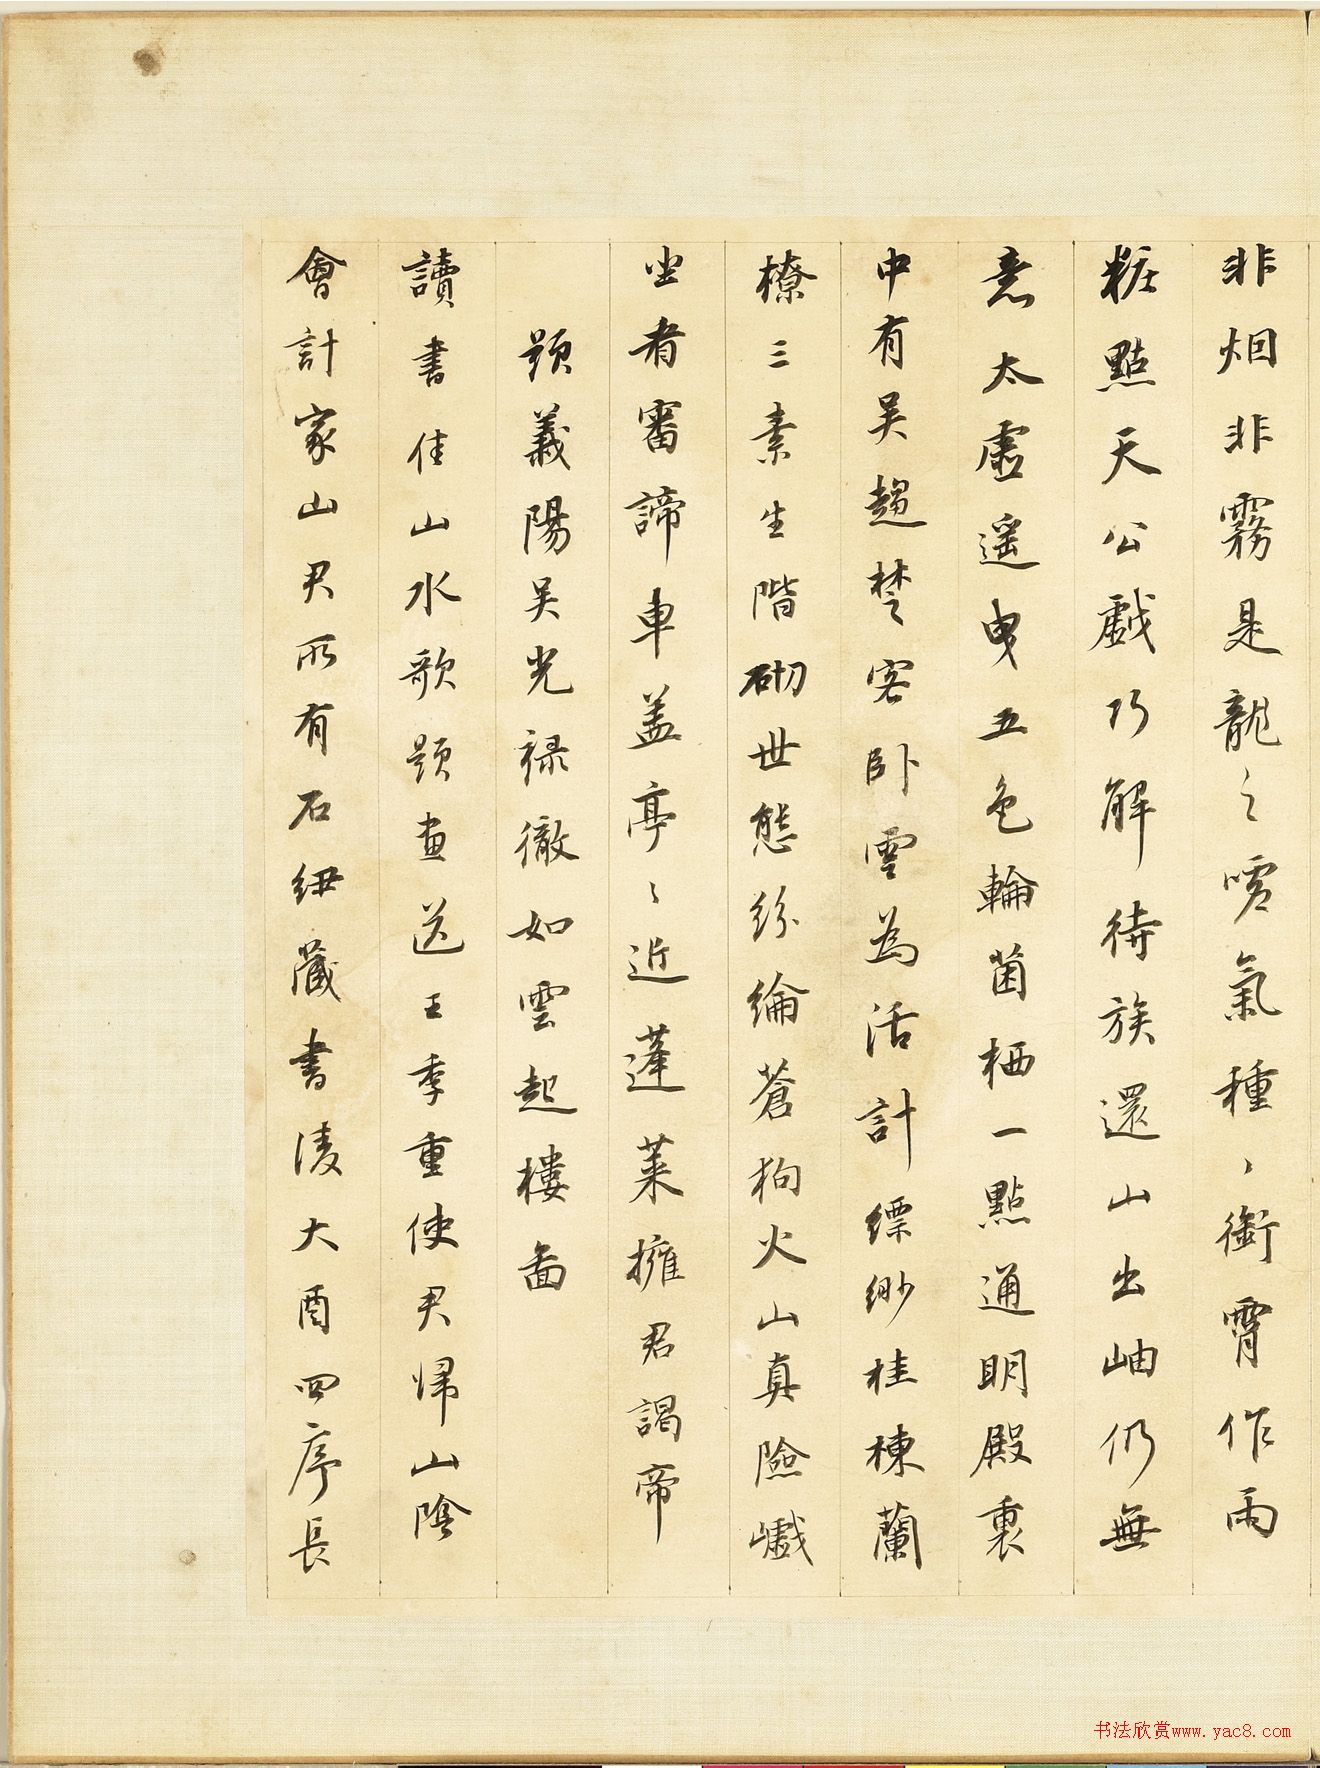 非烟非霧是龍之噓氣種、銜霄作雨
粧點天公戲巧解待族還山出岫仍無
意太虛遥曳五色輪菌栖一點通明殿裏
中有吴趨楚客卧雲為活計縹緲桂棟蘭
橑三素生階砌世態紛綸蒼狗火山真險巇
坐者審諦車盖亭〻近蓬莱擁君謁帝
題義陽吴光禄徹如雲起樓圖
讀書佳山水歌題畫送王季重使君歸山陰
會計家山君所有石紐藏書凌大酉四序長
书法欣赏www.yac8.com